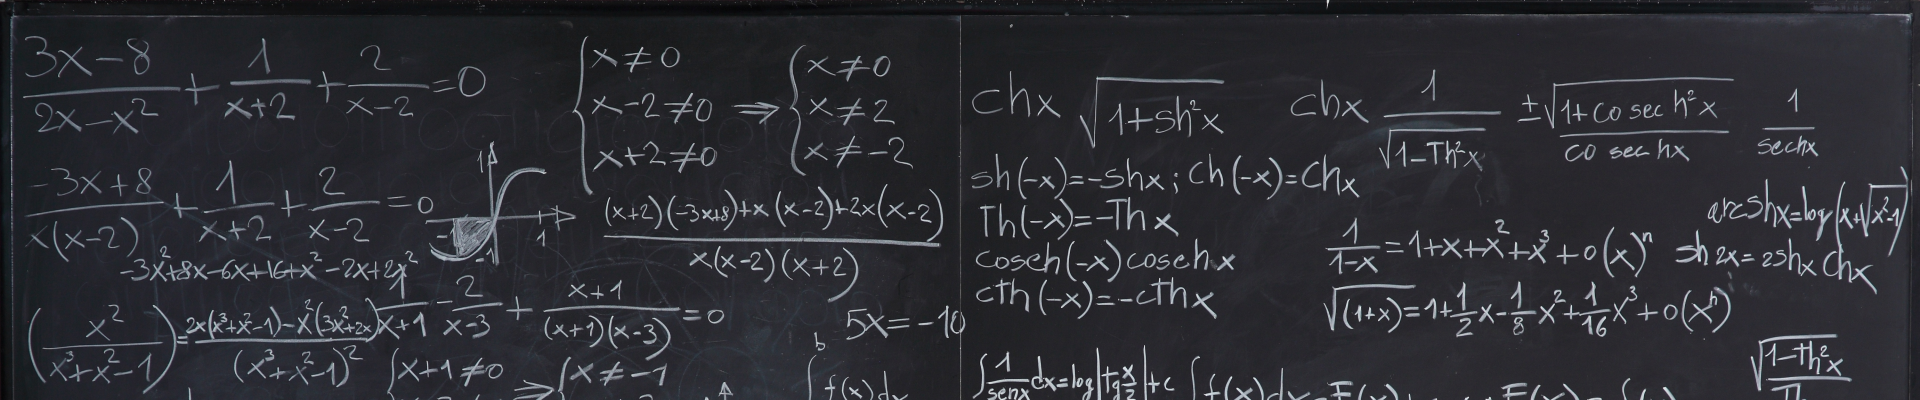 (3x-8)/(2x-x²) + 1/(x+2) + 2/(x-2) = 0
{ x≠0
x-2≠0 ⇒
x+2≠0
{ x≠0
x≠2
x≠-2
(-3x+8)/(x(x-2)) + 1/(x+2) + 2/(x-2) = 0
1
-1
1
((x+2)(-3x+8)+x(x-2)+2x(x-2))/(x(x-2)(x+2))
-3x²+8x-6x+16+x²-2x+2x²
1/(x+1) - 2/(x-3) + (x+1)/((x+1)(x-3)) = 0
5x=-10
(x²/(x³+x²-1)) = (2x(x³+x²-1)-x²(3x²+2x))/(x³+x²-1)²
{ x+1≠0 ⇒ { x≠-1
b
∫ f(x)dx
chx √(1+sh²x)
chx 1/√(1-Th²x)
±√(1+cosech²x)/cosechx
1/sechx
sh(-x)=-shx; ch(-x)=Chx
Th(-x)=-Thx
cosech(-x)cosechx
cth(-x)=-cthx
arcshx=log(x+√(x²-1))
1/(1-x)=1+x+x²+x³+o(x)ⁿ
sh2x=2shx Chx
√(1+x)=1+1/2x-1/8x²+1/16x³+o(xⁿ)
∫1/senx dx=log|tg x/2|+c
√(1-Th²x)